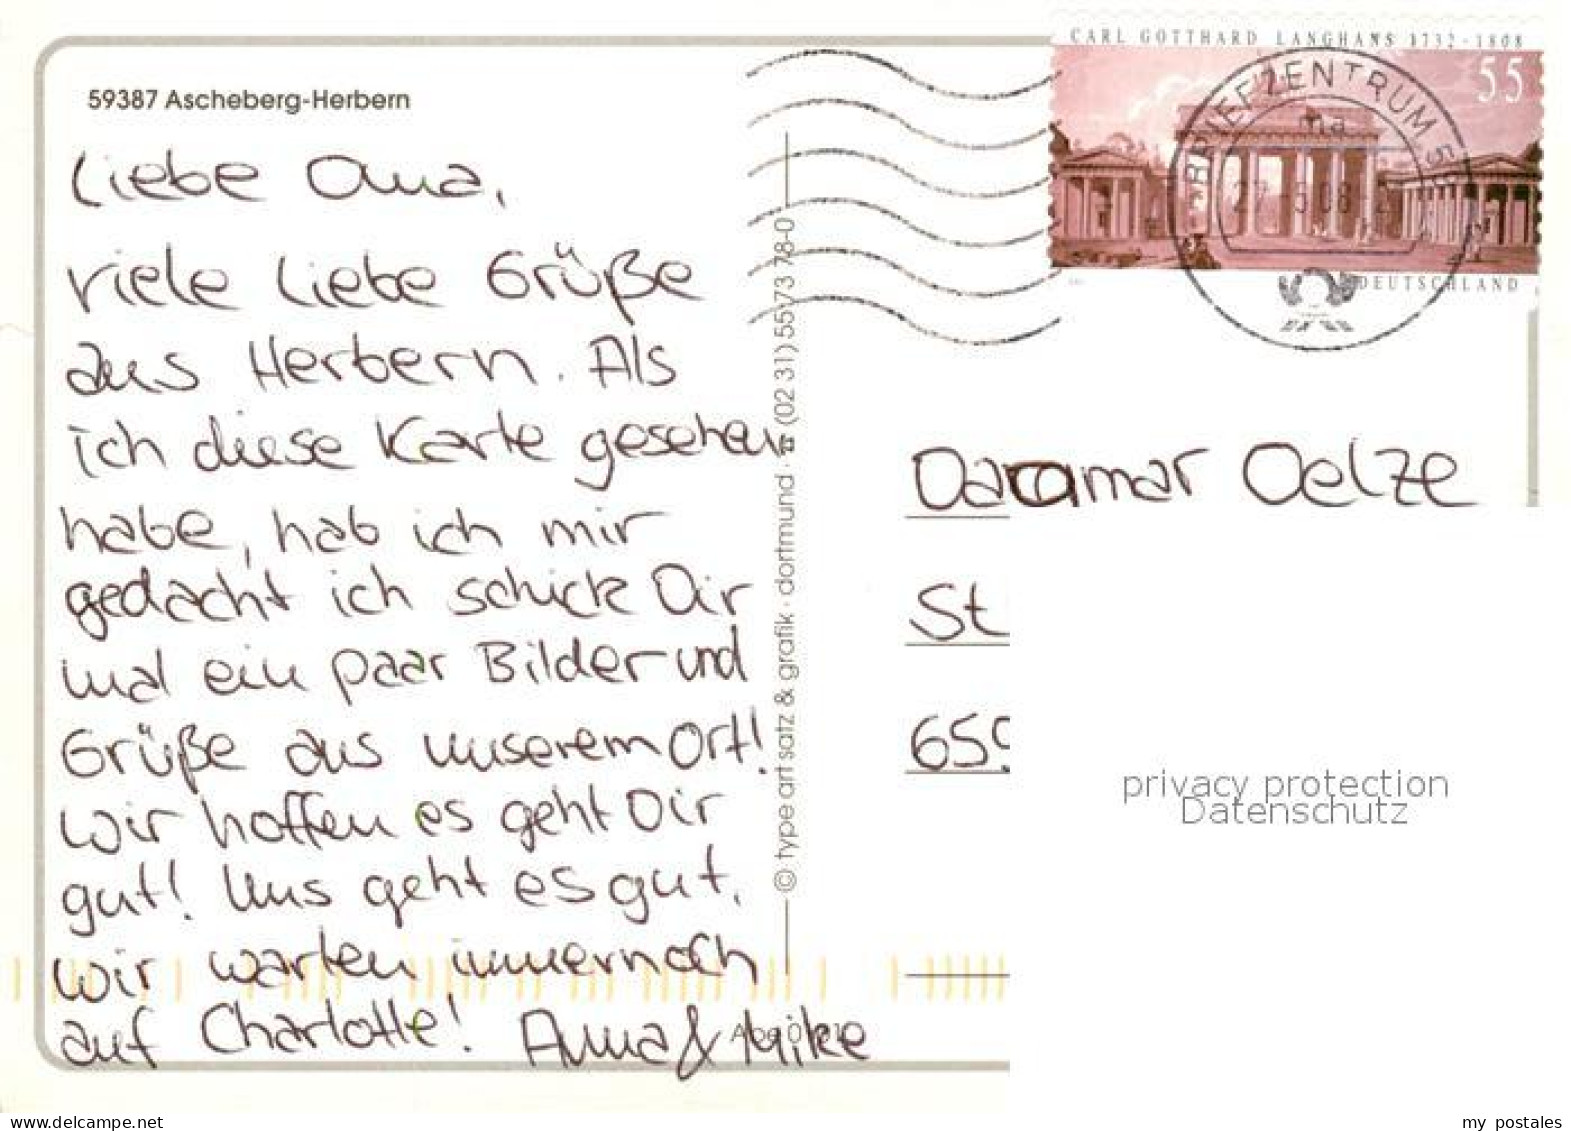 59387 Ascheberg-Herbern
Liebe Oma,
viele liebe Grüße
aus Herbern. Als
ich diese Karte gesehen
habe, hab ich mir
gedacht ich schick Dir
mal ein paar Bilder und
Grüße aus unserem Ort!
Wir hoffen es geht Dir
gut! Uns geht es gut.
Wir warten immernoch
auf Charlotte! Anna & Mike
© type art satz & grafik · dortmund · ☎ (02 31) 55 73 78-0
CARL GOTTHARD LANGHANS 1732-1808
55
DEUTSCHLAND
BRIEFZENTRUM
Dagmar Oelze
St
65
privacy protection
Datenschutz
www.delcampe.net
my_postales